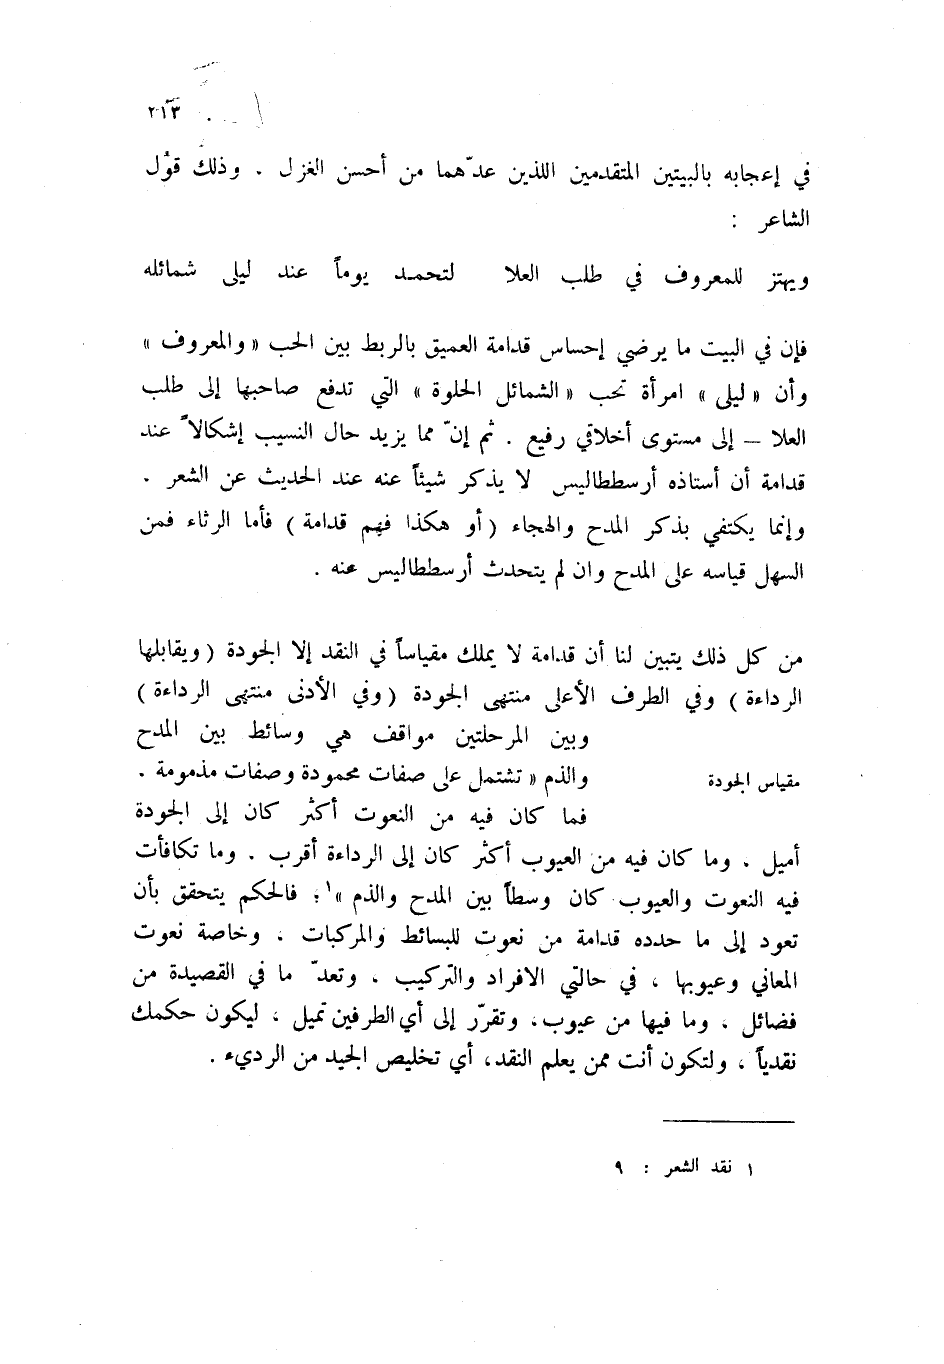 ٢١٣
في إعجابه بالبيتين المتقدمين اللذين عدّهما من أحسن الغزل . وذلك قول
الشاعر :
ويهتز للمعروف في طلب العلا لتحمـد يوماً عند ليلى شمائله
فإن في البيت ما يرضي إحساس قدامة العميق بالربط بين الحب «والمعروف»
وأن «ليلى» امرأة تحب «الشمائل الحلوة» التي تدفع صاحبها إلى طلب
العلا – إلى مستوى أخلاقي رفيع . ثم إنّ مما يزيد حال النسيب إشكالاً عند
قدامة أن أستاذه أرسططاليس لا يذكر شيئاً عنه عند الحديث عن الشعر .
وإنما يكتفي بذكر المدح والهجاء (أو هكذا فهم قدامة) فأما الرثاء فمن
السهل قياسه على المدح وان لم يتحدث أرسططاليس عنه .
من كل ذلك يتبين لنا أن قدامة لا يملك مقياساً في النقد إلا الجودة (ويقابلها
الرداءة) وفي الطرف الأعلى منتهى الجودة (وفي الأدنى منتهى الرداءة)
وبين المرحلتين مواقف هي وسائط بين المدح
مقياس الجودة والذم «تشتمل على صفات محمودة وصفات مذمومة .
فما كان فيه من النعوت أكثر كان إلى الجودة
أميل ، وما كان فيه من العيوب أكثر كان إلى الرداءة أقرب . وما تكافأت
فيه النعوت والعيوب كان وسطاً بين المدح والذم»١؛ فالحكم يتحقق بأن
تعود إلى ما حدده قدامة من نعوت للبسائط والمركبات ، وخاصة نعوت
المعاني وعيوبها ، في حالتي الافراد والتركيب ، وتعدّ ما في القصيدة من
فضائل ، وما فيها من عيوب، وتقرّر إلى أي الطرفين تميل ، ليكون حكمك
نقدياً ، ولتكون أنت ممن يعلم النقد، أي تخليص الجيد من الرديء .
١ نقد الشعر : ٩